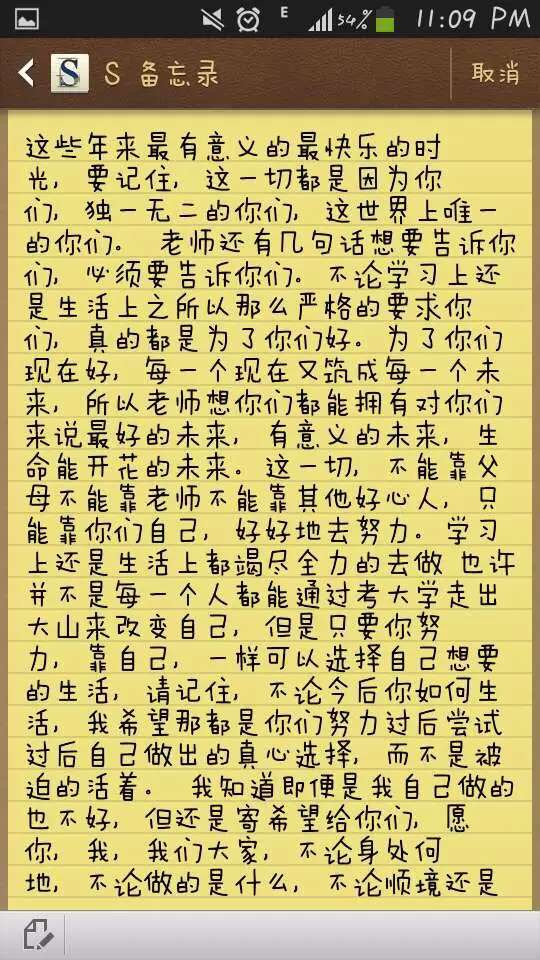 E 54% 11:09 PM
S S 备忘录 取消
这些年来最有意义的最快乐的时
光，要记住，这一切都是因为你
们，独一无二的你们，这世界上唯一
的你们。 老师还有几句话想要告诉你
们，必须要告诉你们。不论学习上还
是生活上之所以那么严格的要求你
们，真的都是为了你们好。为了你们
现在好，每一个现在又筑成每一个未
来，所以老师想你们都能拥有对你们
来说最好的未来，有意义的未来，生
命能开花的未来。这一切，不能靠父
母不能靠老师不能靠其他好心人，只
能靠你们自己，好好地去努力。学习
上还是生活上都竭尽全力的去做 也许
并不是每一个人都能通过考大学走出
大山来改变自己，但是只要你努
力，靠自己，一样可以选择自己想要
的生活，请记住，不论今后你如何生
活，我希望那都是你们努力过后尝试
过后自己做出的真心选择，而不是被
迫的活着。 我知道即便是我自己做的
也不好，但还是寄希望给你们，愿
你，我，我们大家，不论身处何
地，不论做的是什么，不论顺境还是